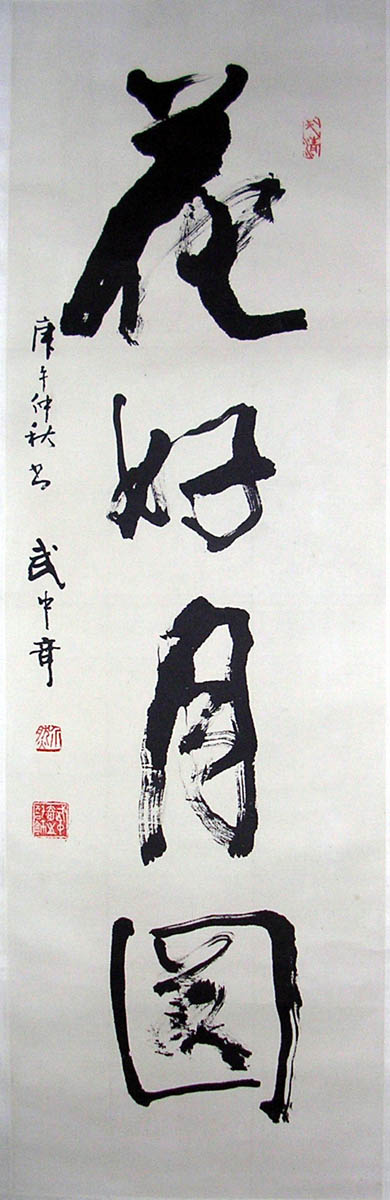 花好月圆
庚午仲秋书 武中奇